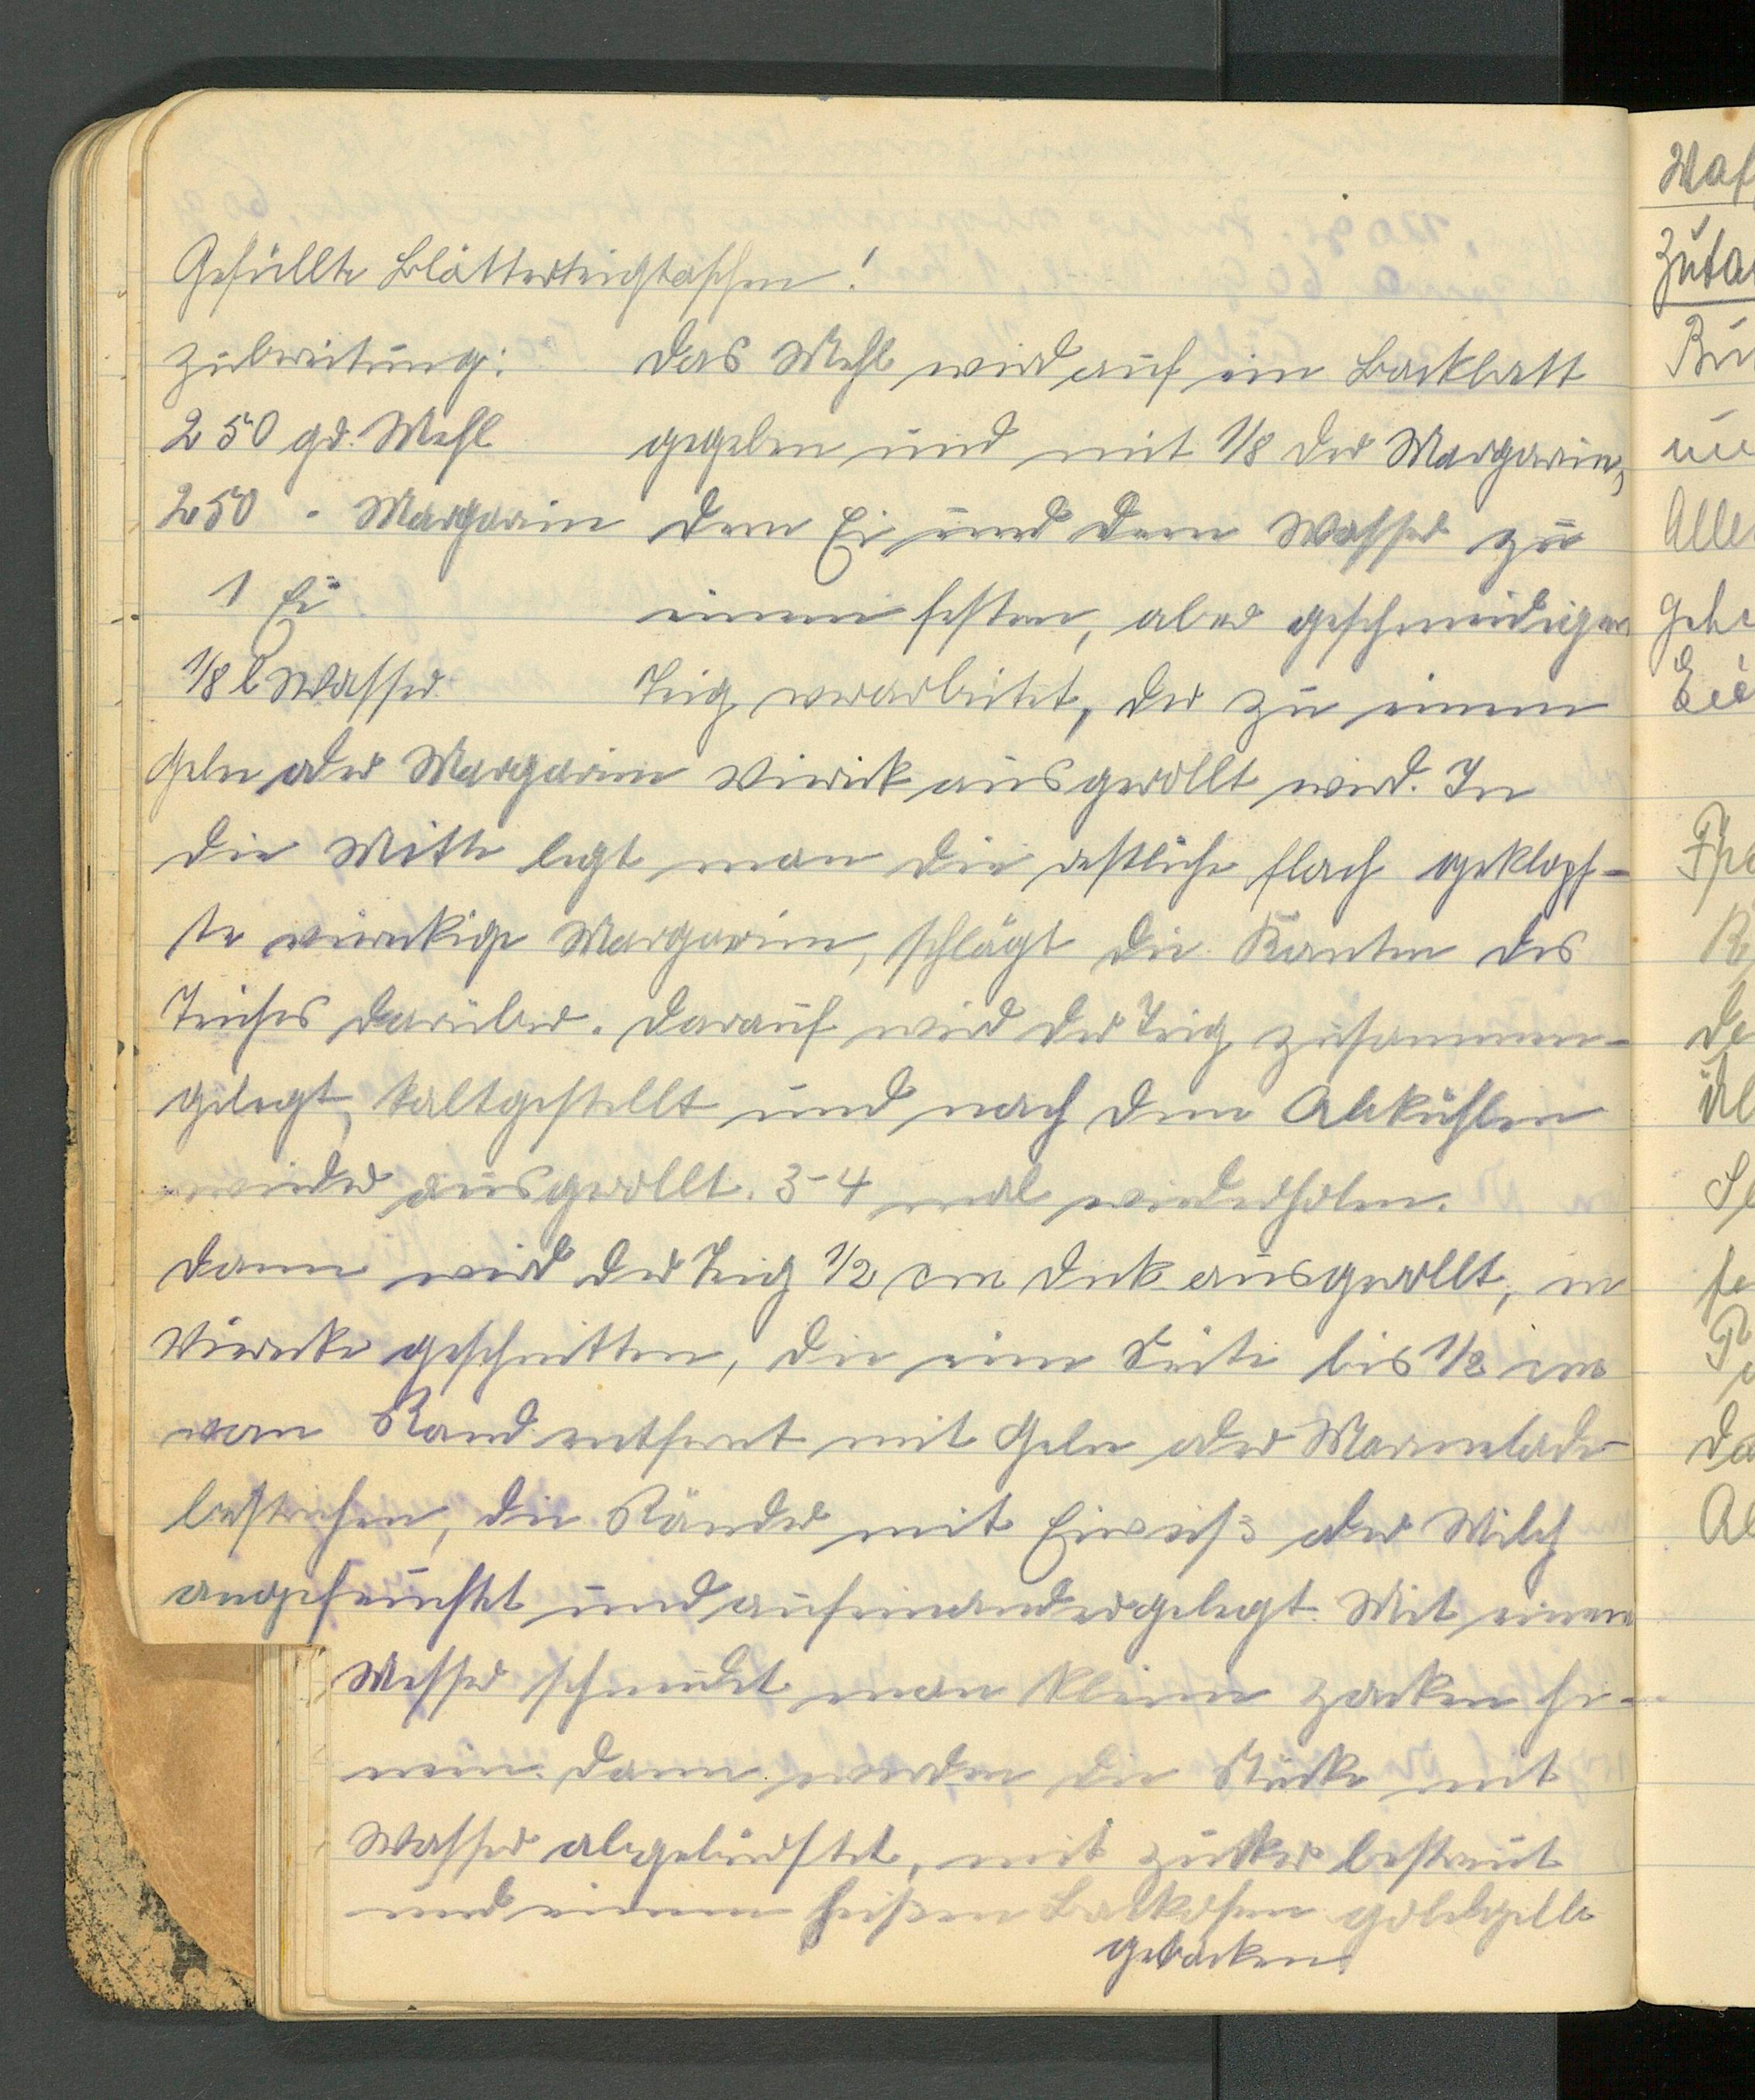 Gefüllte Blätterteigtaschen!
Zubereitung: Das Mehl wird auf ein Backbrett
250 gr. Mehl gegeben und mit 1/8 der Margarine,
250 " Margarin dem Ei und dem Wasser zu
1 Ei einem festen, aber geschmeidigen
1/8 l Wasser Teig verarbeitet, der zu einem
Gelee oder Margarine Viereck ausgerollt wird. In
die Mitte legt man die restliche flach geklopf-
te viereckige Margarine, schlägt die Kanten des
Teiches darüber. Darauf wird der Teig zusammen-
gelegt, kaltgestellt und nach dem Abkühlen
wieder ausgerollt. 3-4 mal wiederholen.
Dann wird der Teig 1/2 cm dick ausgerollt, in
Vierecke geschnitten, die eine Seite bis 1/2 cm
vom Rand entfernt mit Gelee oder Marmelade
bestrichen, die Ränder mit Eiweiß oder Milch
angefeuchtet und aufeinandergelegt. Mit einem
Messer schneidet man kleine Zacken hi-
nein. Dann werden die Stücke mit
Wasser abgebürstet, mit Zucker bestreut
und einem heißen Backofen goldgelb
gebacken.